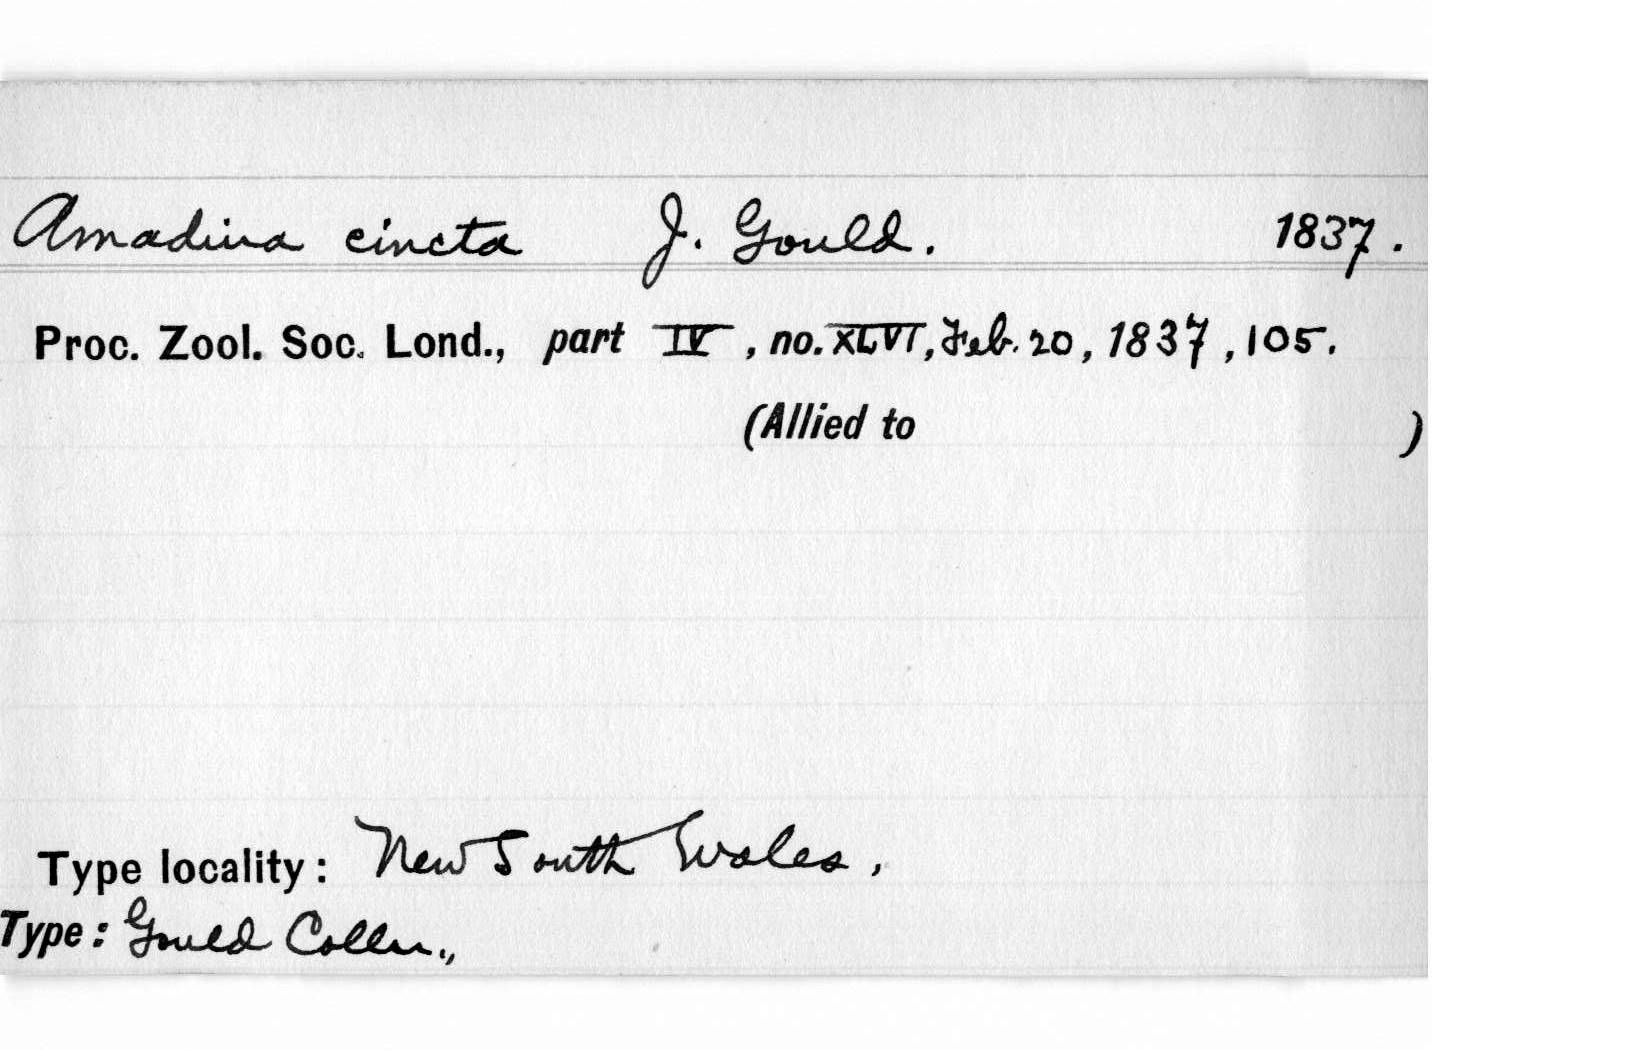 Amadina cincta J. Gould. 1837.
Proc. Zool. Soc. Lond., part IV, no. XLVI, Feb. 20, 1837, 105.
(Allied to )
Type locality: New South Wales,
Type: Gould Colln.,